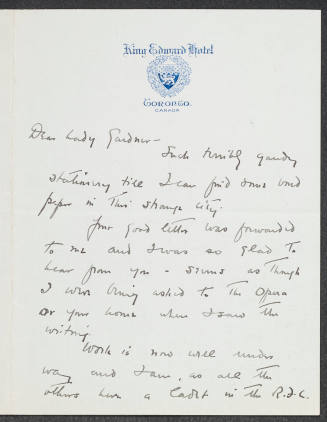 King Edward Hotel
TORONTO,
CANADA
Dear Lady Gardner –
Such terribly gaudy
stationery till I can find some bond
paper in this strange city.
Your good letter was forwarded
to me and I was so glad to
hear from you – seems as though
I were being asked to the Opera
or your home when I saw the
writing
Work is now well under
way and I am, as all the
others here a Cadet in the R.F.C.